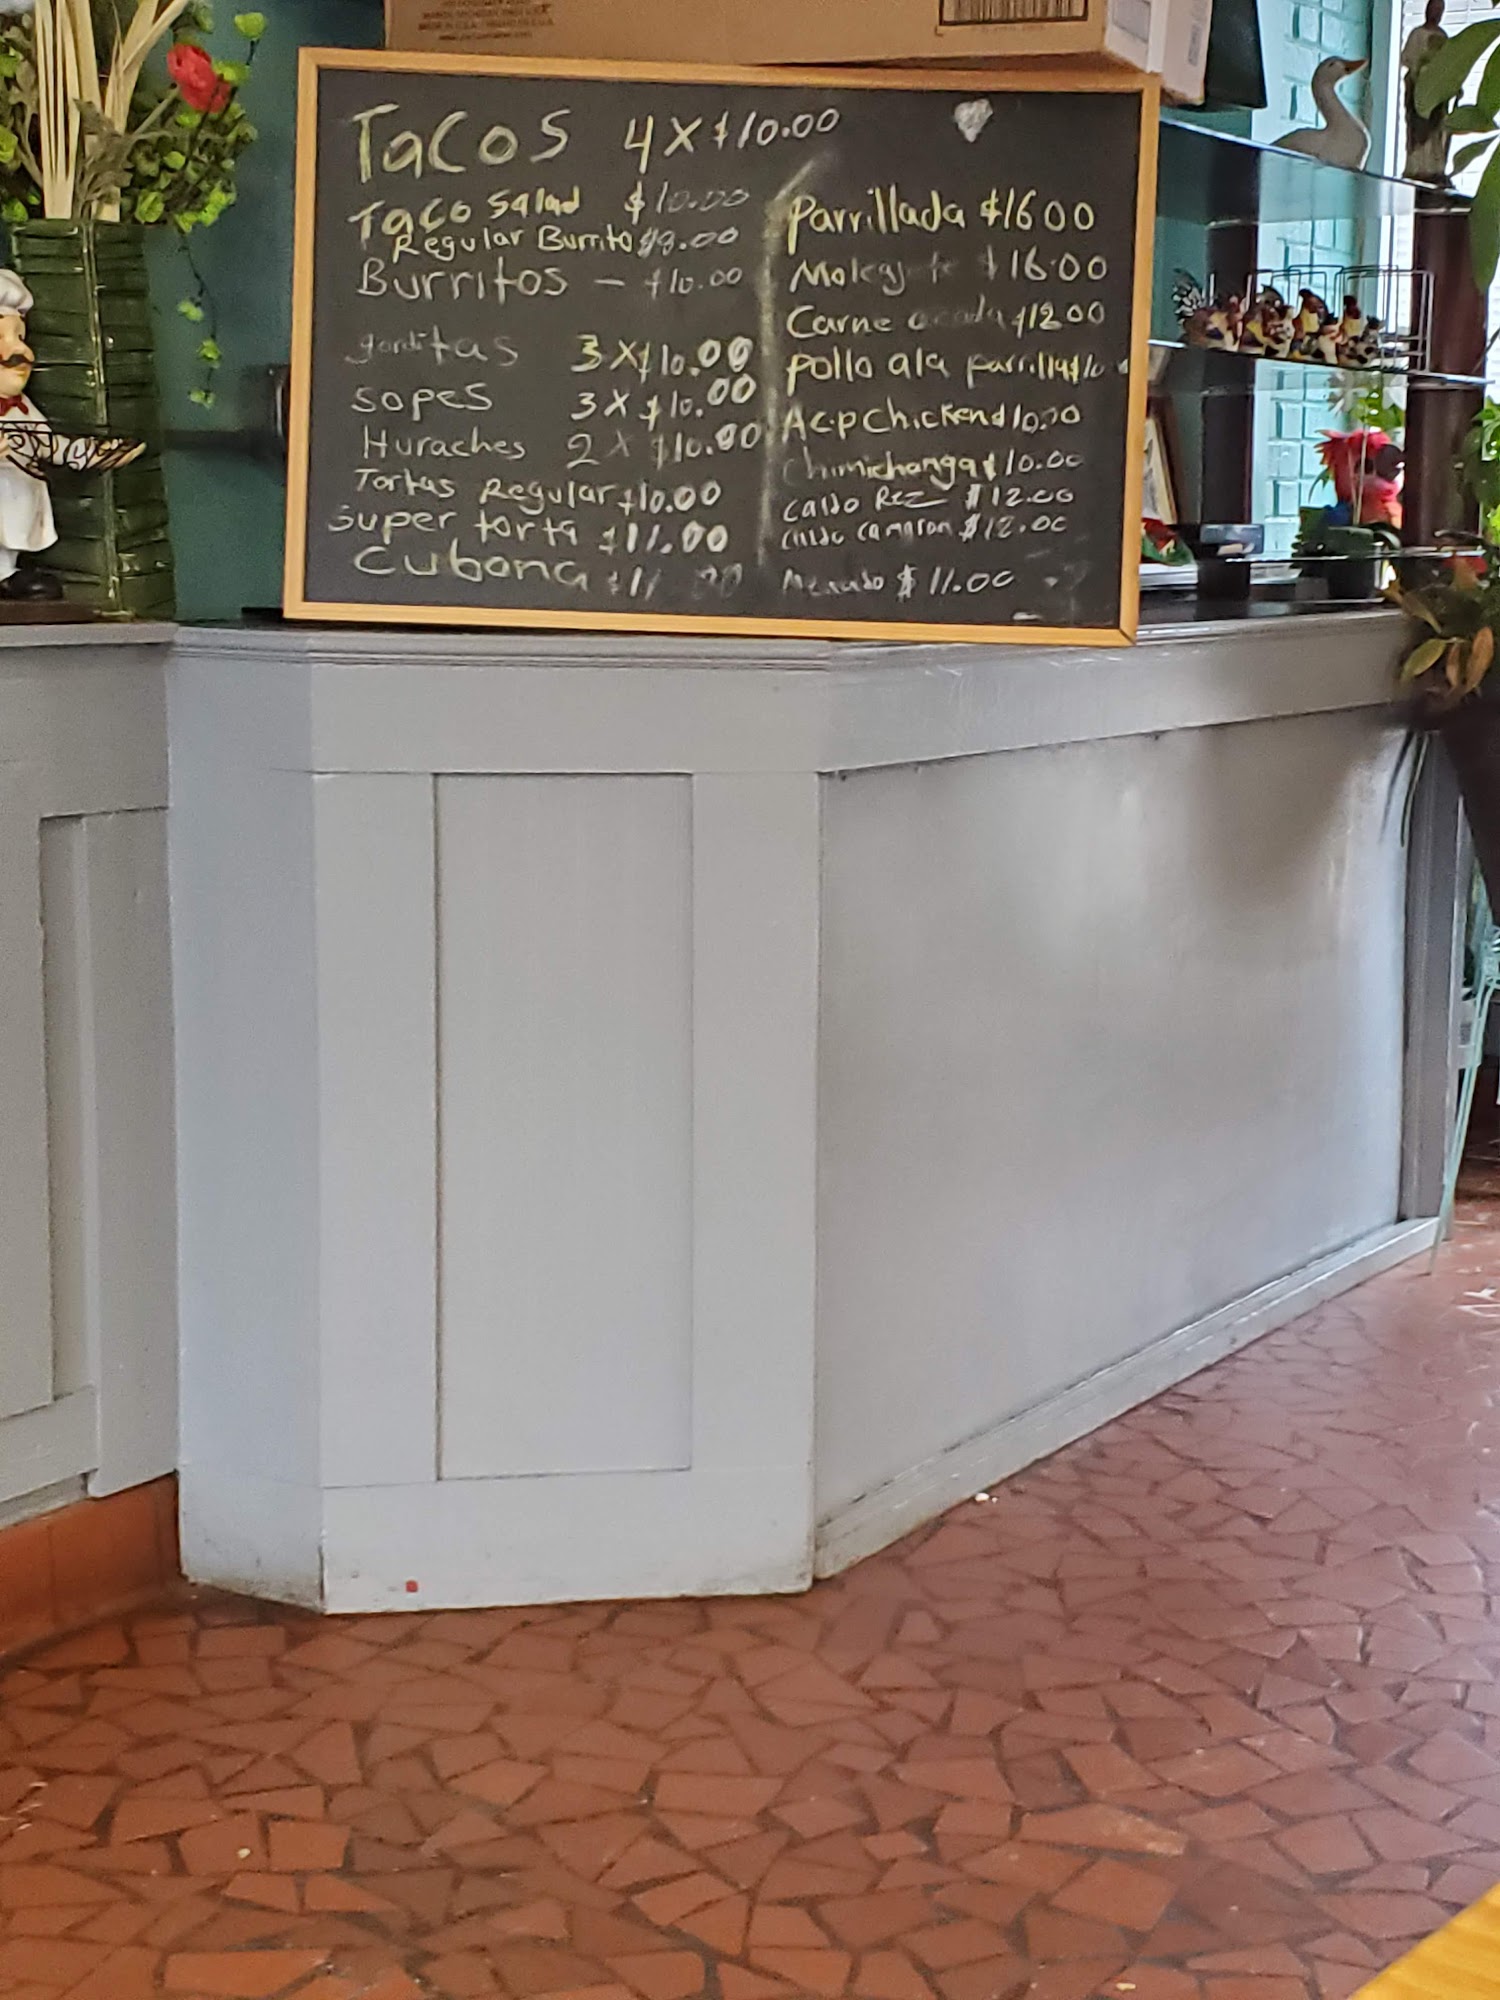 Tacos 4 X $10.00
Taco Salad $10.00
Regular Burrito $8.00
Burritos — $10.00
gorditas 3 X $10.00
sopes 3 X $10.00
Huraches 2 X $10.00
Tortas Regular $10.00
Super torta $11.00
Cubana $11.00
Parrillada $16.00
$16.00
Carne $12.00
pollo ala parrilla
ACP Chicken $10.00
Chimichanga $10.00
caldo Rez $12.00
caldo camaron $12.00
Menudo $11.00